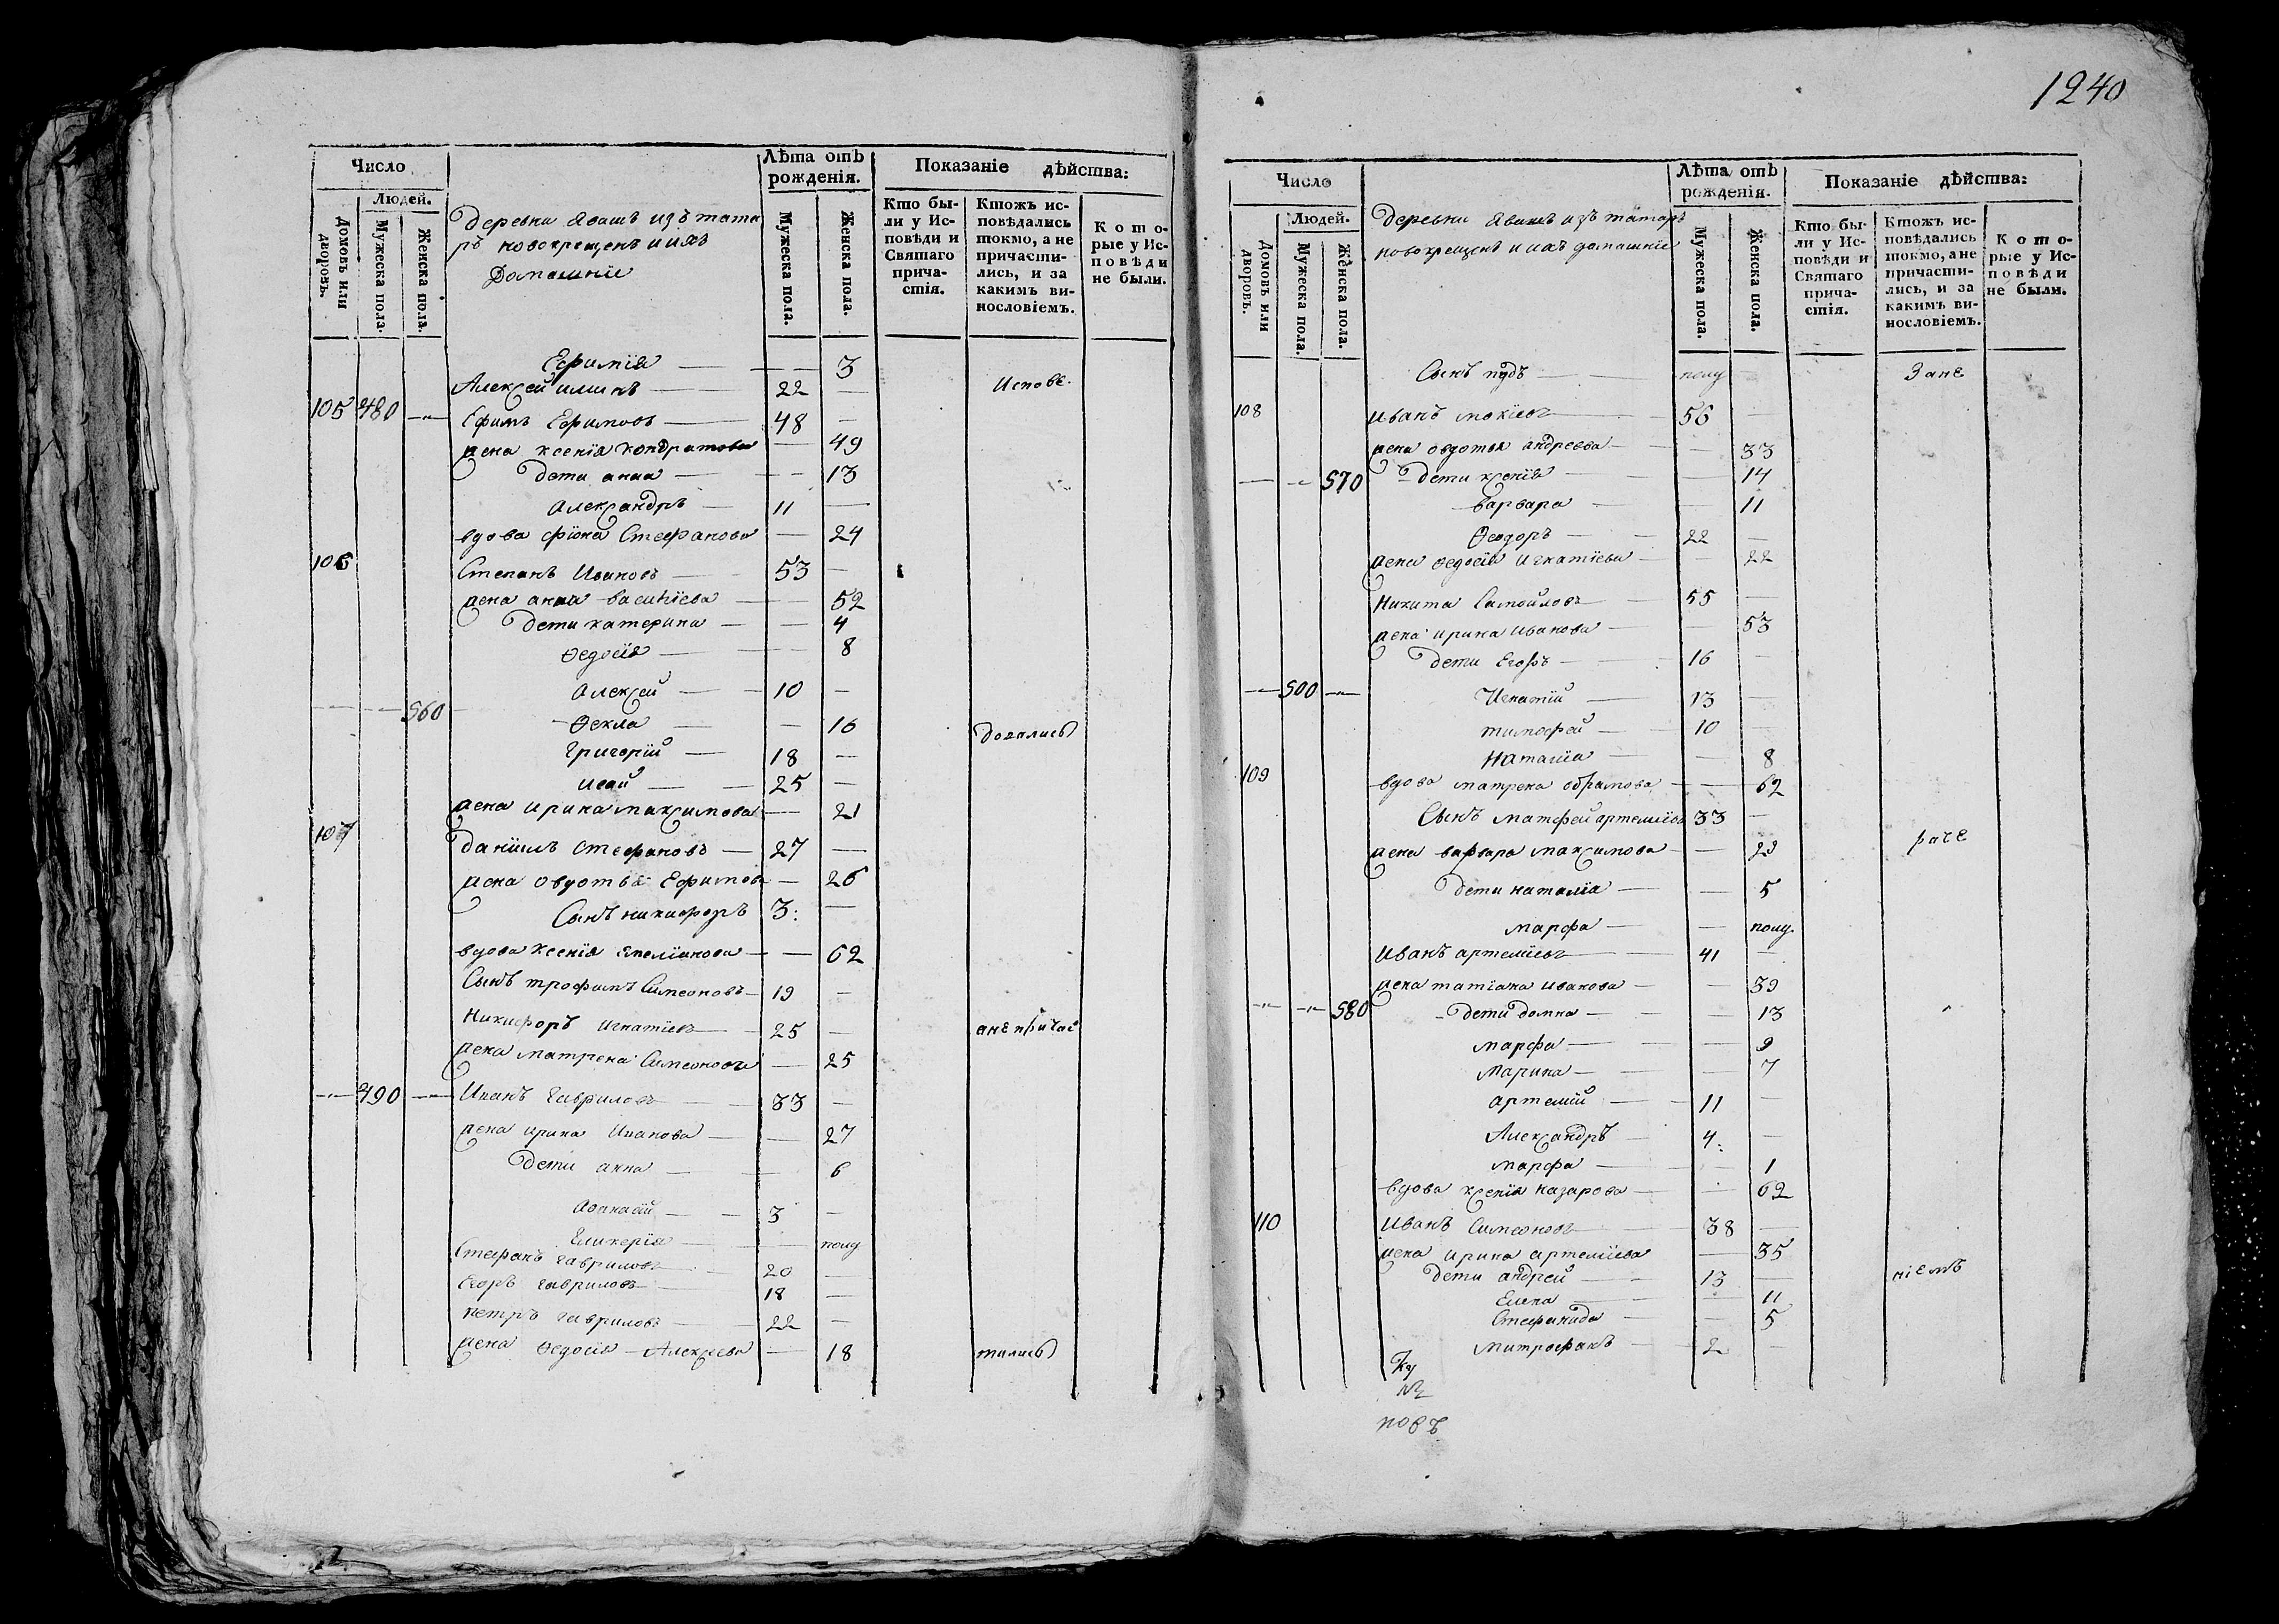 1240
Число
Людей.
Домовъ или дворовъ.
Мужеска пола.
Женска пола.
Деревни Явашъ изъ тата
ръ новокрещенъ и ихъ
Домашние
Лѣта отъ рожденія.
Мужеска пола.
Женска пола.
Показаніе дѣйства:
Кто бы-
ли у Ис-
повѣди и
Святаго
прича-
стія.
Ктожъ ис-
повѣдались
токмо, а не
причасти-
лись, и за
какимъ ви-
нословіемъ.
Кото-
рые у Ис-
повѣди
не были.
Ефимія — — 3
Алексей 22 — Испове
105 480 —"— Ефимъ Ефимовъ — 48 —
жена ксенія кондратова — 49
Дети анна — — 13
александръ — 11 —
вдова фіона Стефанова — 24
106 Степанъ Ивановъ — 53 —
жена анна василіева — 52
Дети катерина — — 4
Ѳедосія — — 8
Алексей — 10 —
560 Ѳекла — — 16 довались
григорій — 18 —
исай — 25 —
жена ирина максимова — 21
107 Даніилъ Стефановъ — 27 —
жена овдотья Ефимова — 26
Сынъ никифоръ 3: —
вдова Ксенія Емеліанова — — 62
Сынъ трофимъ Симеоновъ — 19 —
Никифоръ игнатіевъ — 25 — анепричас
жена матрена Симеонова — 25
—"— 490 —"— Иванъ гавриловъ — 33 —
жена ирина Иванова — — 27
Дети анна — — 6
Аѳанасій — 3 —
Гликерія — — полу
Стефанъ гавриловъ — 20 —
Егоръ гавриловъ — 18 —
петръ гавриловъ — 22 —
жена Ѳедосія Алексеева — 18 тились
Число
Людей.
Домовъ или дворовъ.
Мужеска пола.
Женска пола.
Деревни Явашъ изъ татаръ
новокрещенъ и ихъ домашние
Лѣта отъ рожденія.
Мужеска пола.
Женска пола.
Показаніе дѣйства:
Кто бы-
ли у Ис-
повѣди и
Святаго
прича-
стія.
Ктожъ ис-
повѣдались
токмо, а не
причасти-
лись, и за
какимъ ви-
нословіемъ.
Кото-
рые у Ис-
повѣди
не были.
Сынъ — полу Зане
108 иванъ мокіевъ — 56 —
жена овдотья андреева — — 33
— —"— 570 Дети ксенія — — 14
варвара — — 11
Ѳеодоръ — 22 —
жена Ѳедосія игнатіева — — 22
Никита Самойловъ — 55 —
жена ирина иванова — — 53
Дети Егоръ — 16 —
—"— 500 —"— Игнатій — 13 —
тимофей — 10 —
Наталія — — 8
109 вдова матрена — — 62
Сынъ матфей артеміевъ 33 —
жена варвара максимова — — 29 раче
Дети наталіа — — 5
марфа — — полу.
иванъ артеміевъ — 41 —
жена татіана иванова — — 39
—"— —"— 580 Дети домна — — 13
марфа — — 9
марина — — 7
артемій — 11 —
Александръ — 4. —
марфа — — 1
вдова ксенія назарова — — 62
110 иванъ Симеоновъ — 38 —
жена ирина артеміева — 35
Дети андрей — 13 — ніемъ
Елена — — 11
Стефанида — — 5
митрофанъ — 2 —
новъ